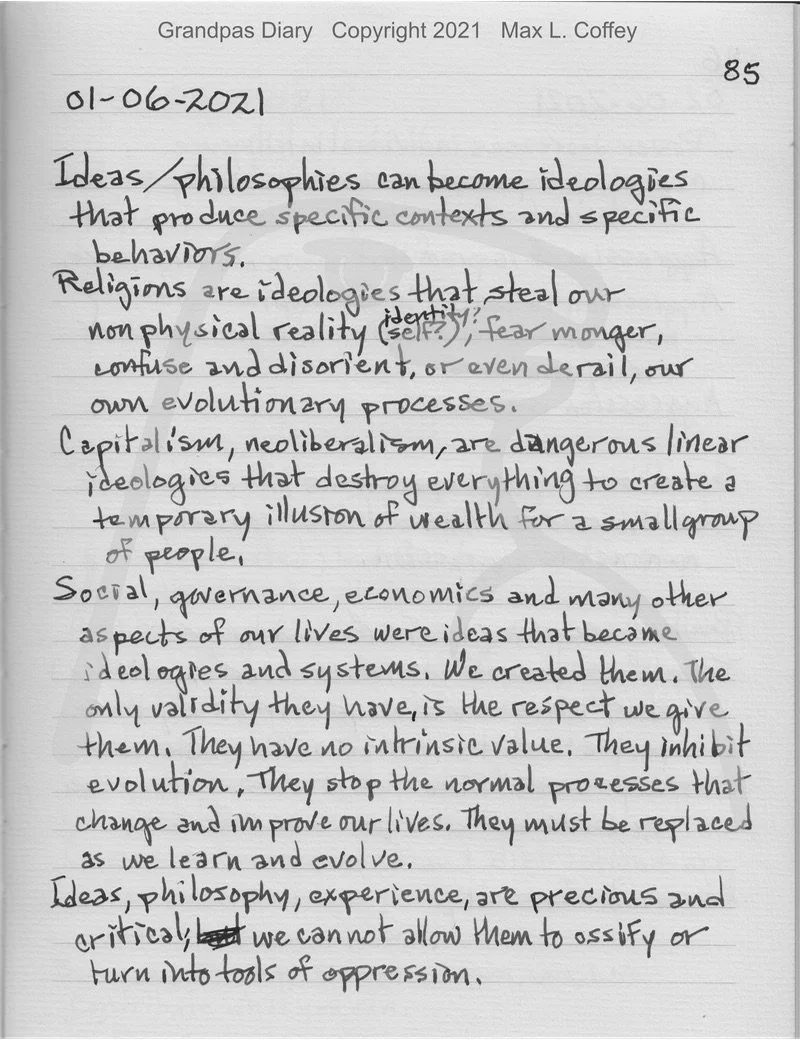 Grandpas Diary Copyright 2021 Max L. Coffey
85
01-06-2021
Ideas/philosophies can become ideologies
that produce specific contexts and specific
behaviors.
Religions are ideologies that steal our
identity?
nonphysical reality (self?), fear monger,
confuse and disorient, or even derail, our
own evolutionary processes.
Capitalism, neoliberalism, are dangerous linear
ideologies that destroy everything to create a
temporary illusion of wealth for a small group
of people.
Social, governance, economics and many other
aspects of our lives were ideas that became
ideologies and systems. We created them. The
only validity they have, is the respect we give
them. They have no intrinsic value. They inhibit
evolution. They stop the normal processes that
change and improve our lives. They must be replaced
as we learn and evolve.
Ideas, philosophy, experience, are precious and
critical; we cannot allow them to ossify or
turn into tools of oppression.